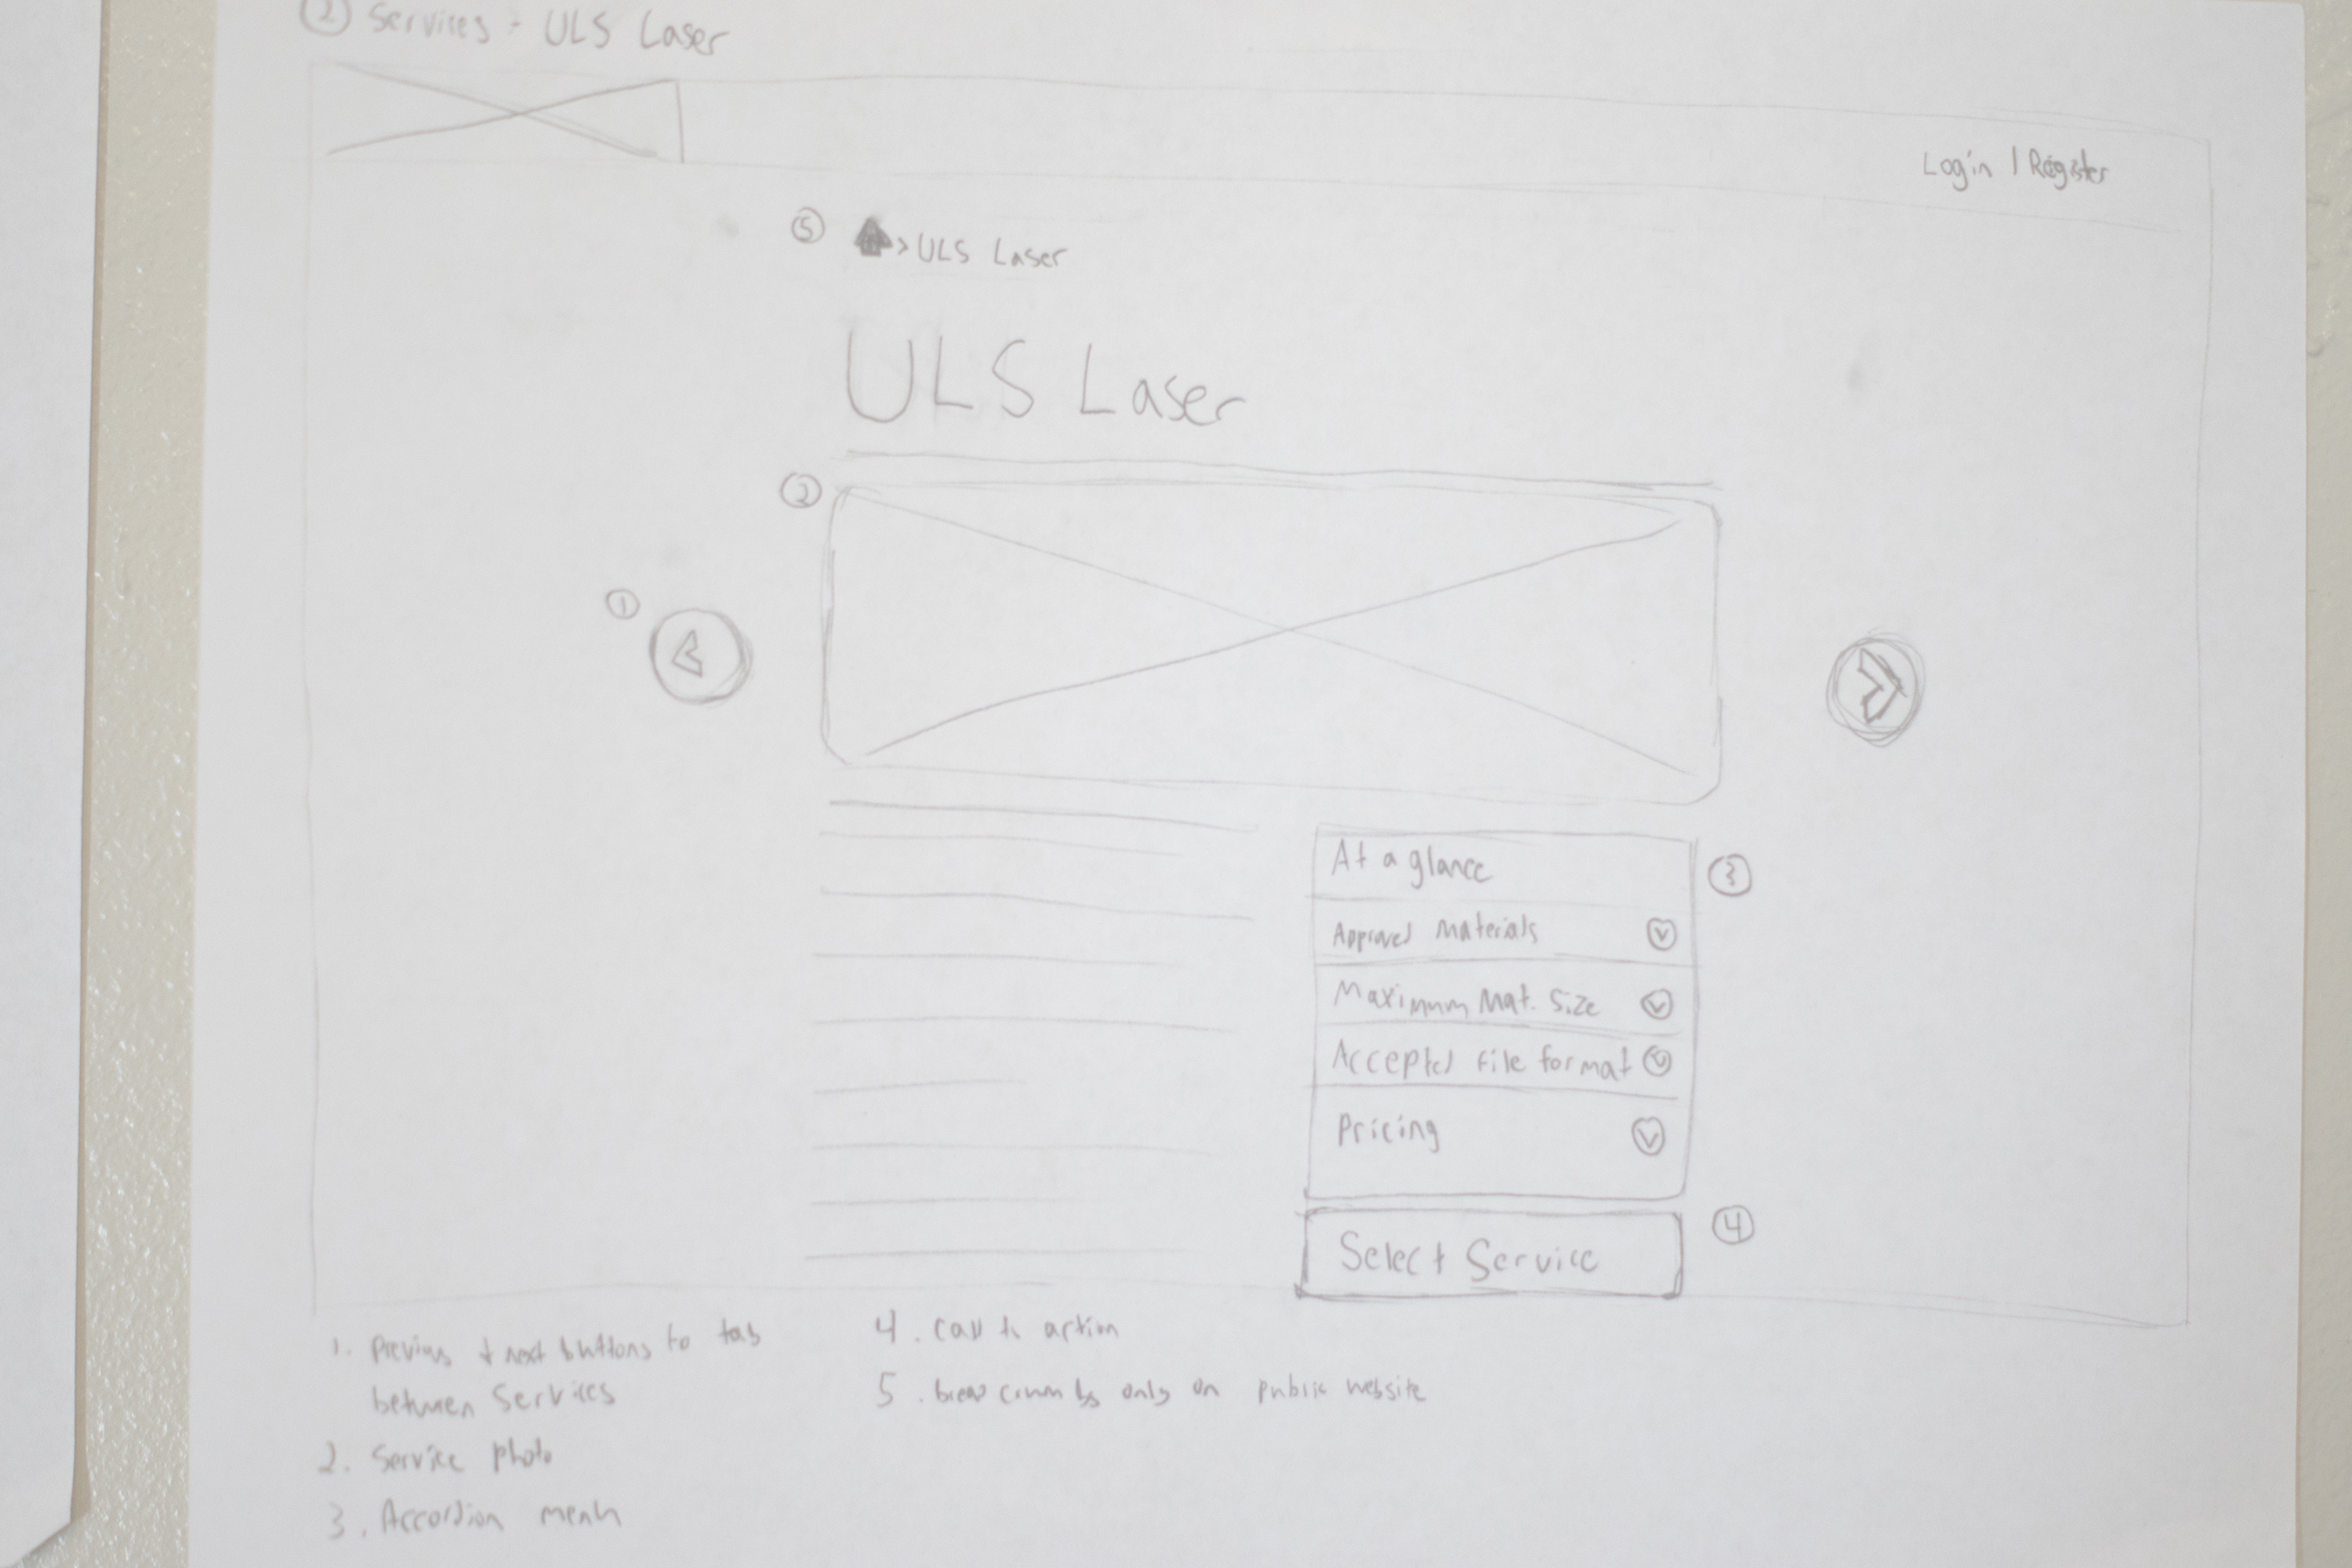 2 Services - ULS Laser
Login | Register
5 > ULS Laser
ULS Laser
2
1
At a glance
3
Approved Materials
Maximum Mat. Size
Accepted File format
Pricing
4
Select Service
1. Previous + next buttons to tab
between Services
2. Service photo
3. Accordion menu
4. Call to action
5. breadcrumbs only on public website